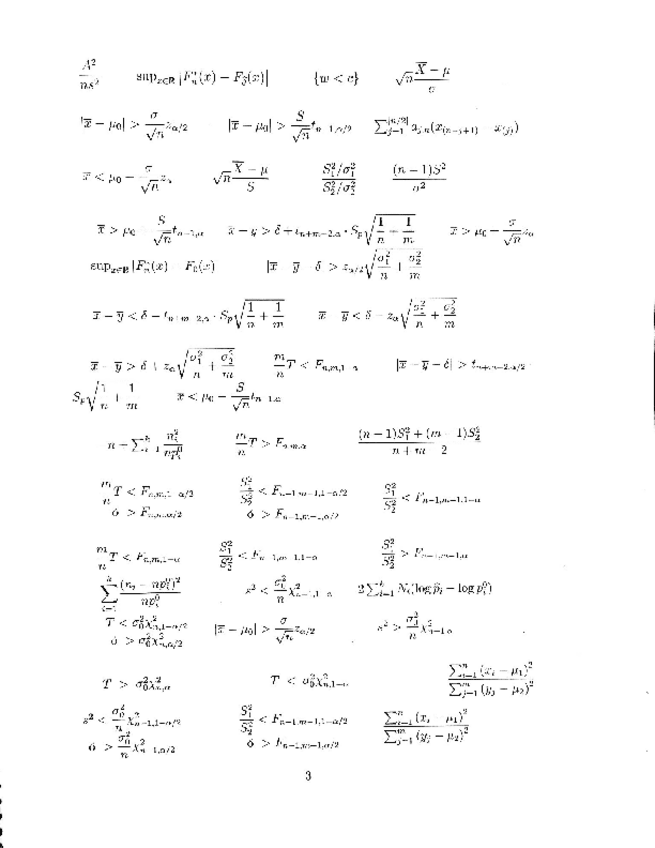 A²/(ns²)    sup_{x∈ℝ} |F*_n(x) − F_θ̂(x)|    {w < c}    √n (X̄ − μ)/σ
|x̄ − μ₀| > (σ/√n) z_{α/2}    |x̄ − μ₀| > (S/√n) t_{n−1,α/2}    ∑_{j=1}^{[n/2]} a_{j,n}(x_{(n−j+1)} − x_{(j)})
x̄ < μ₀ − (σ/√n) z_α    √n (X̄ − μ)/S    (S₁²/σ₁²)/(S₂²/σ₂²)    (n − 1)S²/σ²
x̄ > μ₀ + (S/√n) t_{n−1,α}    x̄ − ȳ > δ + t_{n+m−2,α} · S_p √(1/n + 1/m)    x̄ > μ₀ − (σ/√n) z_α
sup_{x∈ℝ} |F*_n(x) − F₀(x)|    |x̄ − ȳ − δ| > z_{α/2} √(σ₁²/n + σ₂²/m)
x̄ − ȳ < δ − t_{n+m−2,α} · S_p √(1/n + 1/m)    x̄ − ȳ < δ − z_α √(σ₁²/n + σ₂²/m)
x̄ − ȳ > δ + z_α √(σ₁²/n + σ₂²/m)    (m/n) T < F_{n,m,1−α}    |x̄ − ȳ − δ| > t_{n+m−2,α/2} ·
S_p √(1/n + 1/m)    x̄ < μ₀ − (S/√n) t_{n−1,α}
n + ∑_{i=1}^{k} n_i²/(np_i⁰)    (m/n) T > F_{n,m,α}    ((n − 1)S₁² + (m − 1)S₂²)/(n + m − 2)
(m/n) T < F_{n,m,1−α/2}    S₁²/S₂² < F_{n−1,m−1,1−α/2}    S₁²/S₂² < F_{n−1,m−1,1−α}
ó > F_{n,m,α/2}    ó > F_{n−1,m−1,α/2}
(m/n) T < F_{n,m,1−α}    S₁²/S₂² < F_{n−1,m−1,1−α}    S₁²/S₂² > F_{n−1,m−1,α}
∑_{i=1}^{k} (n_i − np_i⁰)²/(np_i⁰)    s² < (σ₀²/n) χ²_{n−1,1−α}    2 ∑_{i=1}^{k} N_i(log p̂_i − log p_i⁰)
T < σ₀²χ²_{n,1−α/2}    |x̄ − μ₀| > (σ/√n) z_{α/2}    s² > (σ₀²/n) χ²_{n−1,α}
ó > σ₀²χ²_{n,α/2}
T > σ₀²χ²_{n,α}    T < σ₀²χ²_{n,1−α}    ∑_{i=1}^{n} (x_i − μ₁)² / ∑_{j=1}^{m} (y_j − μ₂)²
s² < (σ₀²/n) χ²_{n−1,1−α/2}    S₁²/S₂² < F_{n−1,m−1,1−α/2}    ∑_{i=1}^{n} (x_i − μ₁)² / ∑_{j=1}^{m} (y_j − μ₂)²
ó > (σ₀²/n) χ²_{n−1,α/2}    ó > F_{n−1,m−1,α/2}
3